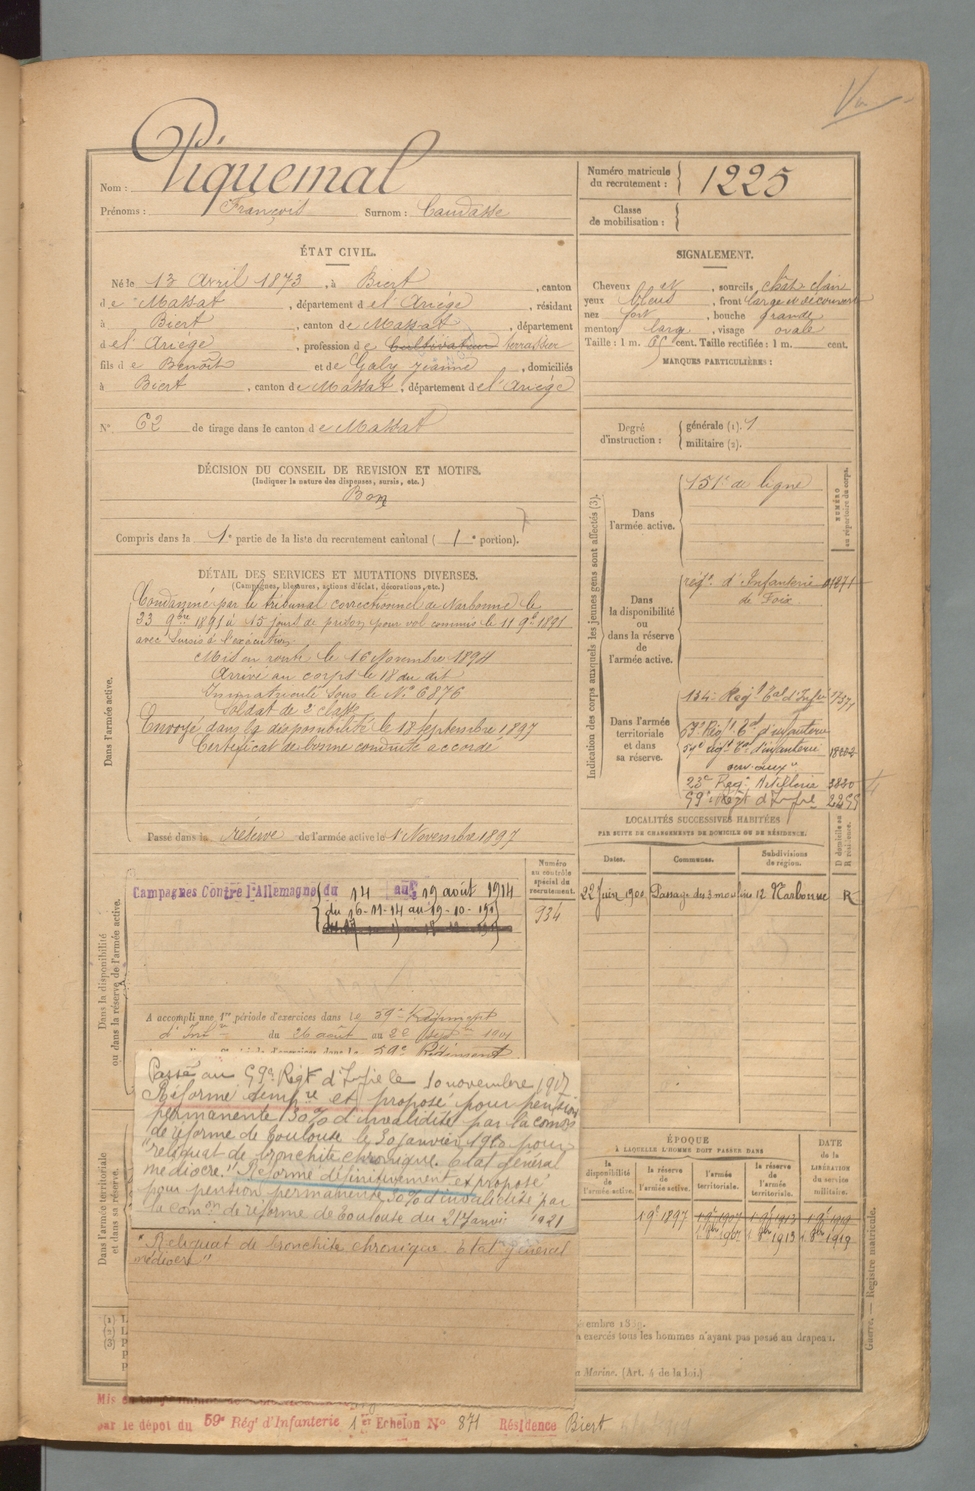 Nom : Piquemal
Prénoms : François Surnom : Caudasse
Numéro matricule du recrutement : 1225
Classe de mobilisation :
ÉTAT CIVIL.
Né le 13 Avril 1873, à Biert, canton
de Massat, département de l'Ariège, résidant
à Biert, canton de Massat, département
de l'Ariège, profession de Cultivateur terrassier
fils de Benoît et de Galy Jeanne, domiciliés
à Biert, canton de Massat, département de l'Ariège
N° 62 de tirage dans le canton de Massat
SIGNALEMENT.
Cheveux et, sourcils chât clair
yeux bleus, front large et découvert
nez fort, bouche grande
menton large, visage ovale
Taille : 1 m. 65 cent. Taille rectifiée : 1 m. cent.
MARQUES PARTICULIÈRES :
Degré d'instruction : générale (1). 1
militaire (2).
DÉCISION DU CONSEIL DE REVISION ET MOTIFS.
(Indiquer la nature des dispenses, sursis, etc.)
Bon
Compris dans la 1e partie de la liste du recrutement cantonal ( 1e portion).
DÉTAIL DES SERVICES ET MUTATIONS DIVERSES.
(Campagnes, blessures, actions d'éclat, décorations, etc.)
Dans l'armée active.
Condamné par le tribunal correctionnel de Narbonne le
23 9bre 1891 à 15 jours de prison pour vol commis le 11 9bre 1891
avec sursis à l'exécution
Mis en route le 16 Novembre 1894
Arrivé au corps le 18 du dit
Immatriculé sous le N° 6876
Soldat de 2e classe
Envoyé dans la disponibilité le 18 Septembre 1897
Certificat de bonne conduite accordé
Passé dans la réserve de l'armée active le 1 Novembre 1897
Indication des corps auxquels les jeunes gens sont affectés (3).
NUMÉRO au répertoire du corps.
Dans l'armée active. 151e de ligne
Dans la disponibilité ou dans la réserve de l'armée active.
régt. d'Infanterie
de Foix.
Dans l'armée territoriale et dans sa réserve.
134e Regt tal d'Infie
59e régt tal d'infanterie
23e Regt Artillerie
99e Régt d'Infie 2299
LOCALITÉS SUCCESSIVES HABITÉES
PAR SUITE DE CHANGEMENTS DE DOMICILE OU DE RÉSIDENCE.
Dates. Communes. Subdivisions de région. D domicile ou R résidence.
22 Juin 1900 Passage des 3 moulins 12 Narbonne R
Dans la disponibilité ou dans la réserve de l'armée active.
Numéro au contrôle spécial du recrutement.
934
Campagnes Contre l'Allemagne du 14 au 19 août 1914
A accompli une 1re période d'exercices dans le 59e Régiment
d'Infie du 26 août au 22 Septre 1901
59e Régiment
Passé au 99e Régt d'Infie le 10 novembre 1917
Réformé tempre et proposé pour pension
permanente 30% d'invalidité par la comon
de réforme de Toulouse le 30 janvier 1920 pour
"reliquat de bronchite chronique. Etat général
médiocre." Réformé définitivement et proposé
pour pension permanente 30% d'invalidité par
la comon de réforme de Toulouse du 21 Janvi 1921
"Reliquat de bronchite chronique. Etat général
médiocre"
Dans l'armée territoriale et dans sa réserve.
ÉPOQUE
À LAQUELLE L'HOMME DOIT PASSER DANS
la disponibilité de l'armée active. la réserve de l'armée active. l'armée territoriale. la réserve de l'armée territoriale. DATE de la LIBÉRATION du service militaire.
exercés tous les hommes n'ayant pas passé au drapeau.
Marine. (Art. 4 de la loi.)
Guerre. — Registre matricule.
par le dépôt du 59e Régt d'Infanterie 1er Echelon No 871 Résidence Biert